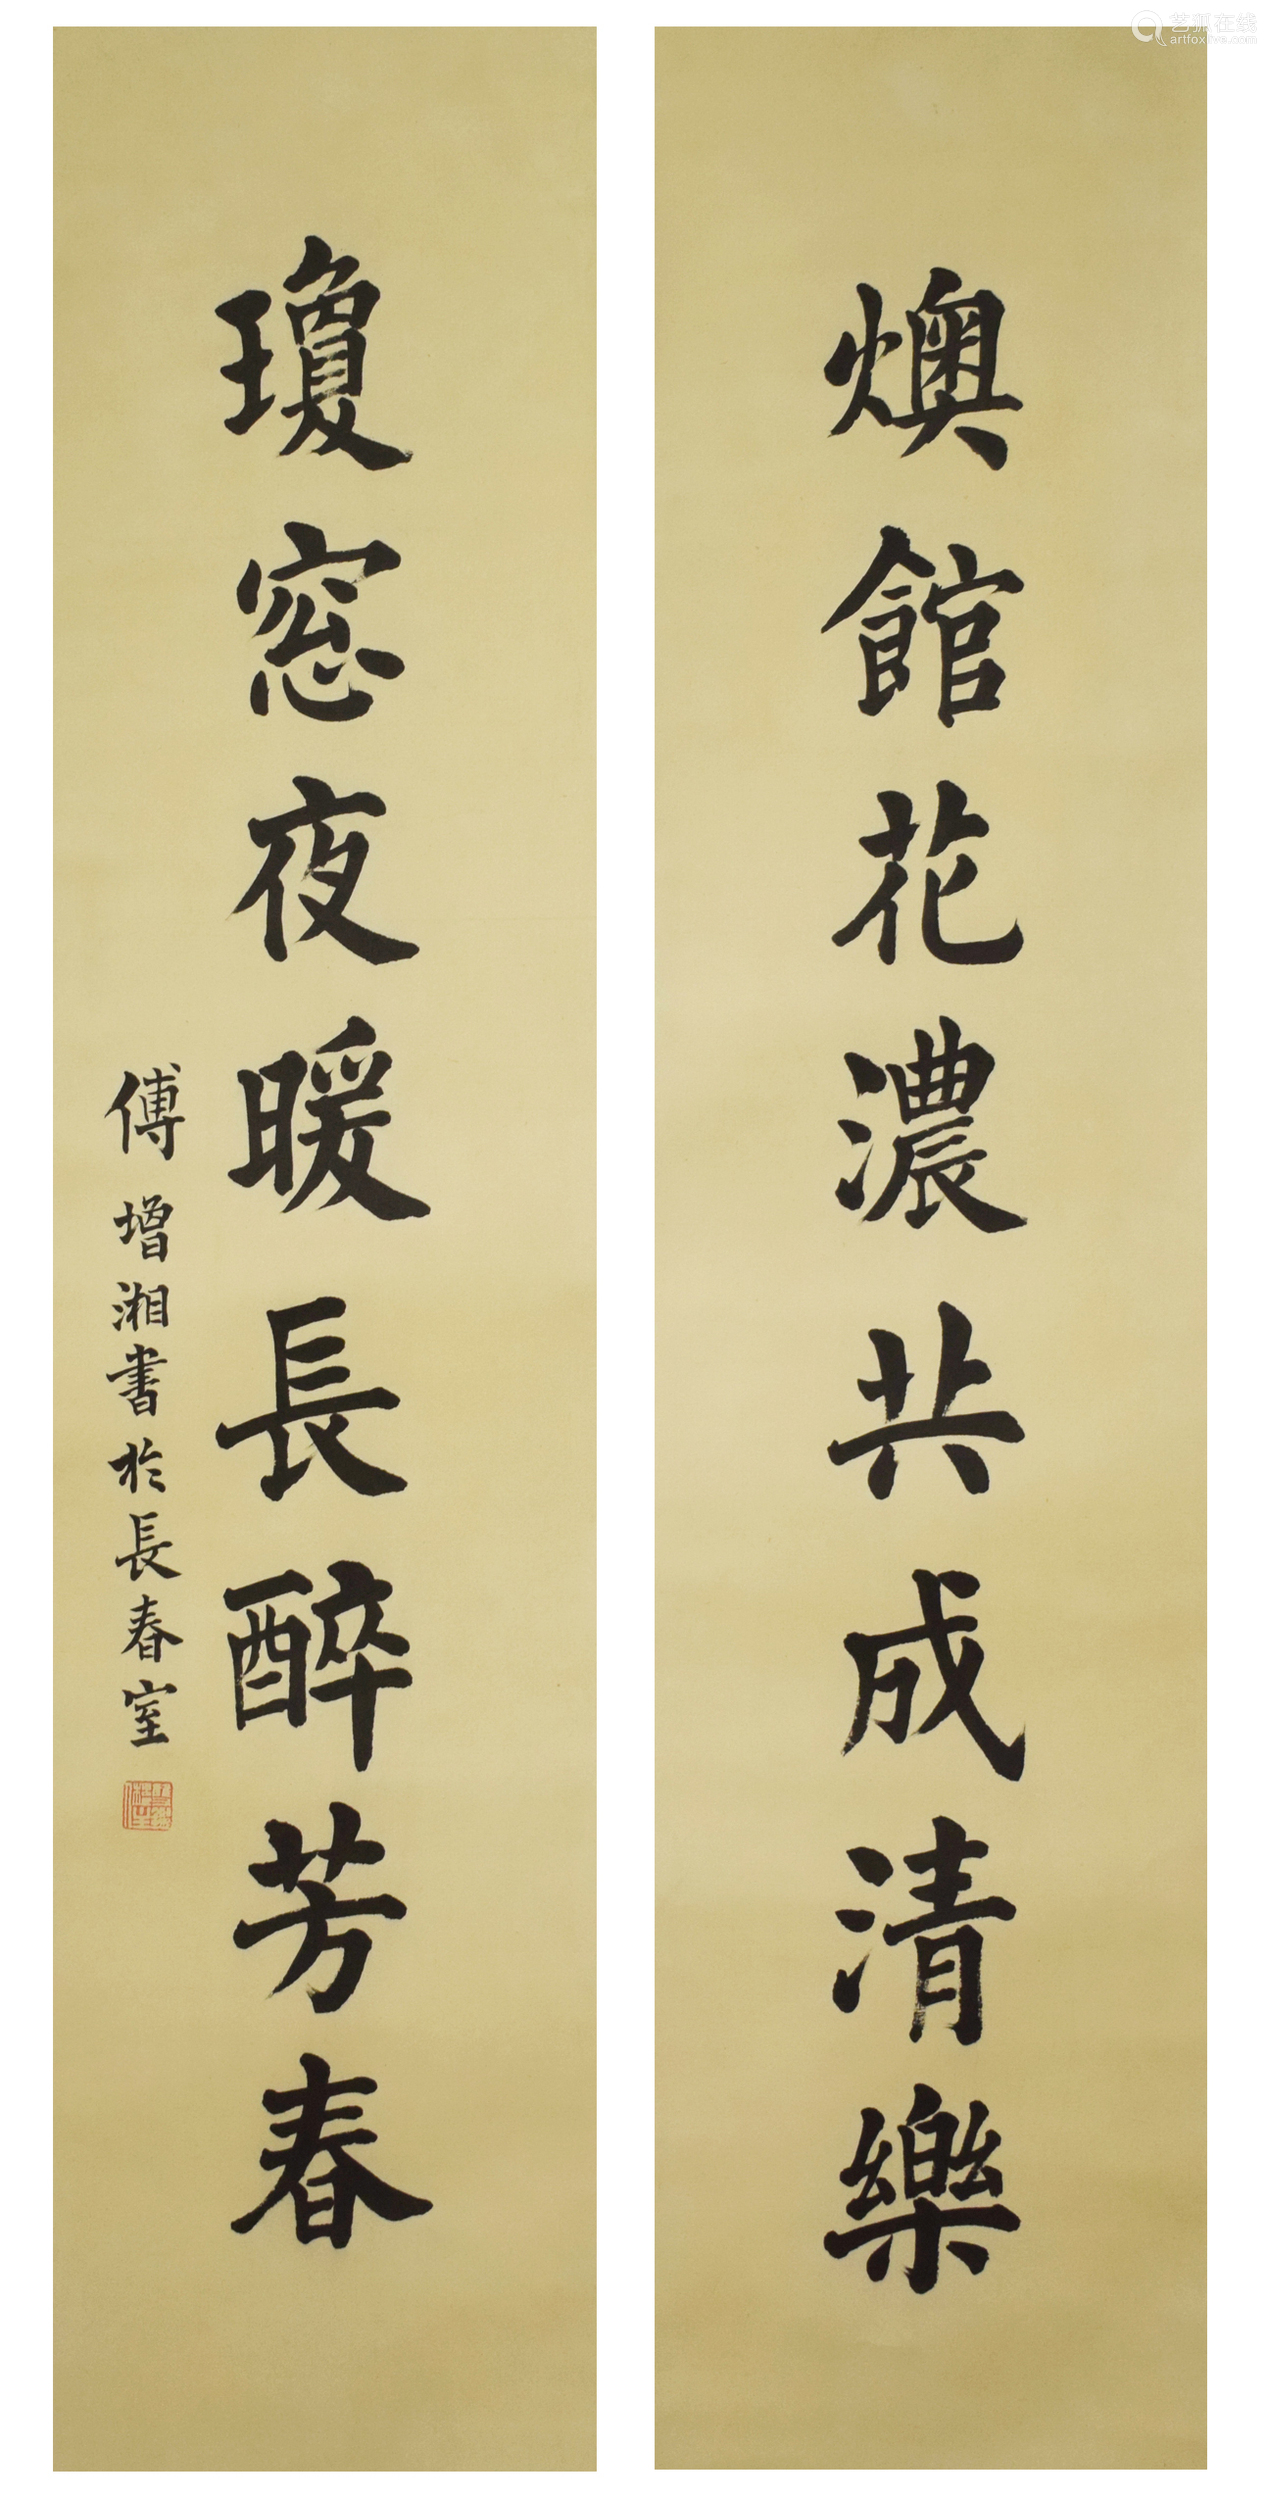 燠館花濃共成清樂
瓊窓夜暖長醉芳春
傅增湘書於長春室
艺狐在线
artfoxlive.com